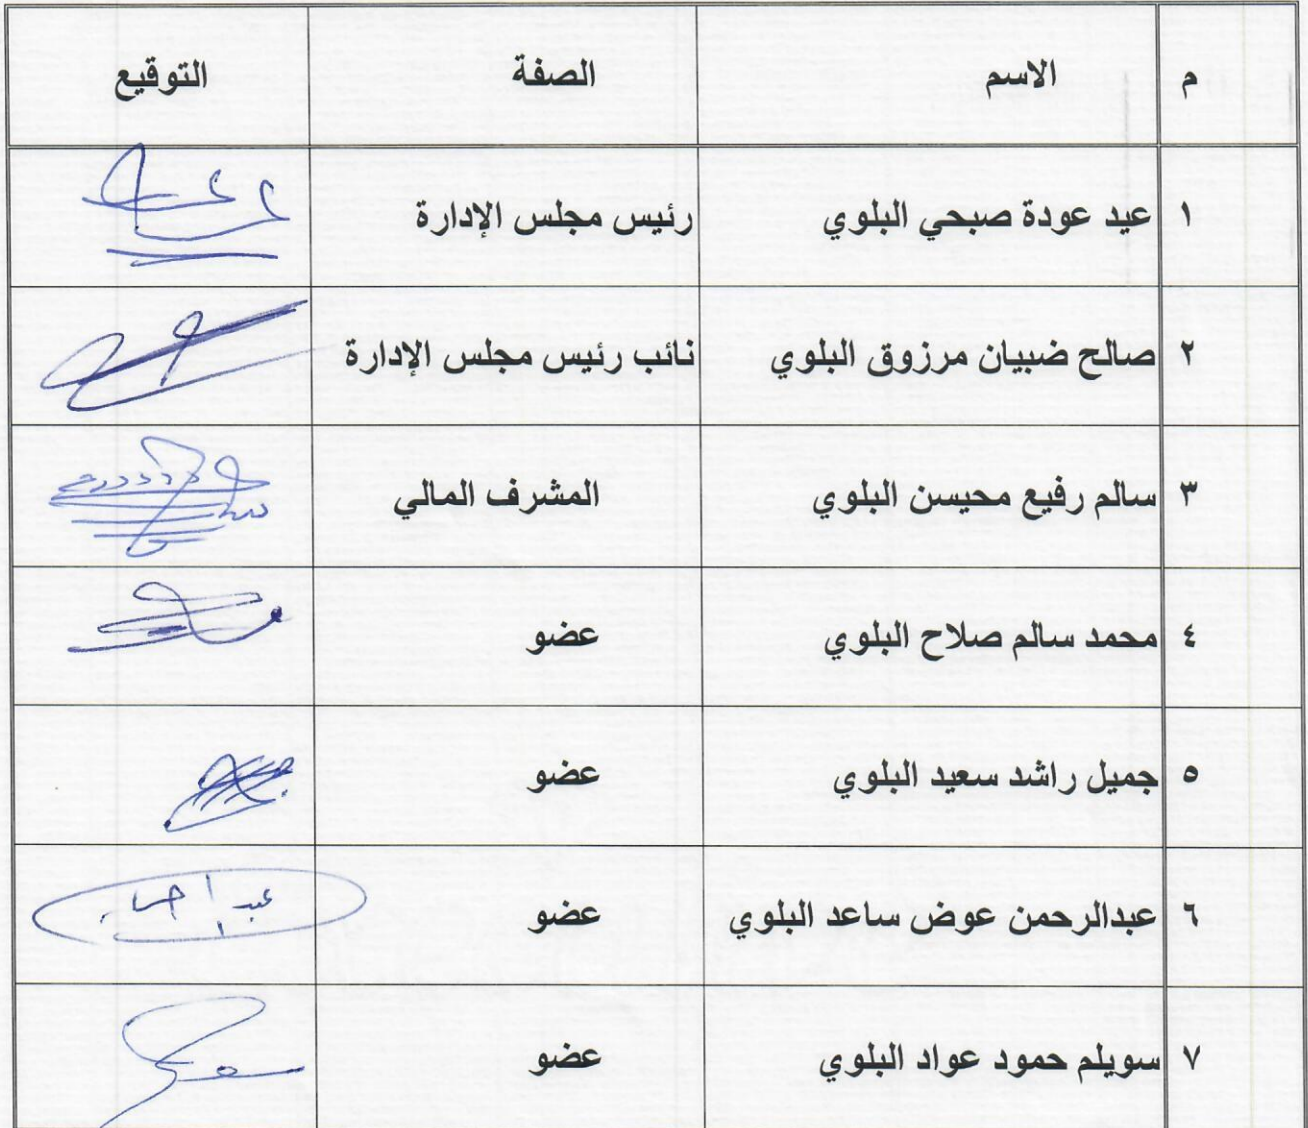 م الاسم الصفة التوقيع
١ عيد عودة صبحي البلوي رئيس مجلس الإدارة
٢ صالح ضبيان مرزوق البلوي نائب رئيس مجلس الإدارة
٣ سالم رفيع محيسن البلوي المشرف المالي
٤ محمد سالم صلاح البلوي عضو
٥ جميل راشد سعيد البلوي عضو
٦ عبدالرحمن عوض ساعد البلوي عضو
٧ سويلم حمود عواد البلوي عضو